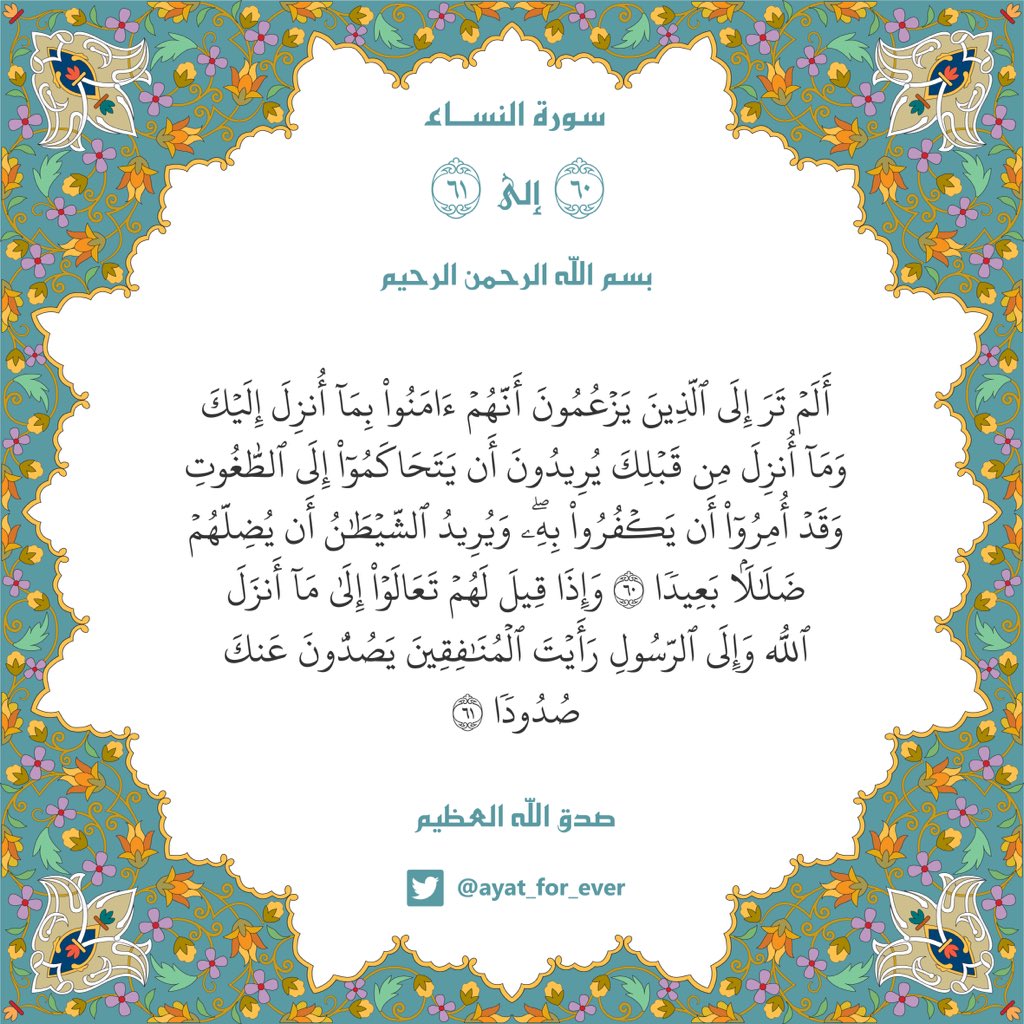 سورة النساء
٦٠ إلى ٦١
بسم الله الرحمن الرحيم
أَلَمۡ تَرَ إِلَى ٱلَّذِينَ يَزۡعُمُونَ أَنَّهُمۡ ءَامَنُواْ بِمَآ أُنزِلَ إِلَيۡكَ
وَمَآ أُنزِلَ مِن قَبۡلِكَ يُرِيدُونَ أَن يَتَحَاكَمُوٓاْ إِلَى ٱلطَّٰغُوتِ
وَقَدۡ أُمِرُوٓاْ أَن يَكۡفُرُواْ بِهِۦۖ وَيُرِيدُ ٱلشَّيۡطَٰنُ أَن يُضِلَّهُمۡ
ضَلَٰلَۢا بَعِيدٗا ٦٠ وَإِذَا قِيلَ لَهُمۡ تَعَالَوۡاْ إِلَىٰ مَآ أَنزَلَ
ٱللَّهُ وَإِلَى ٱلرَّسُولِ رَأَيۡتَ ٱلۡمُنَٰفِقِينَ يَصُدُّونَ عَنكَ
صُدُودٗا ٦١
صدق الله العظيم
@ayat_for_ever